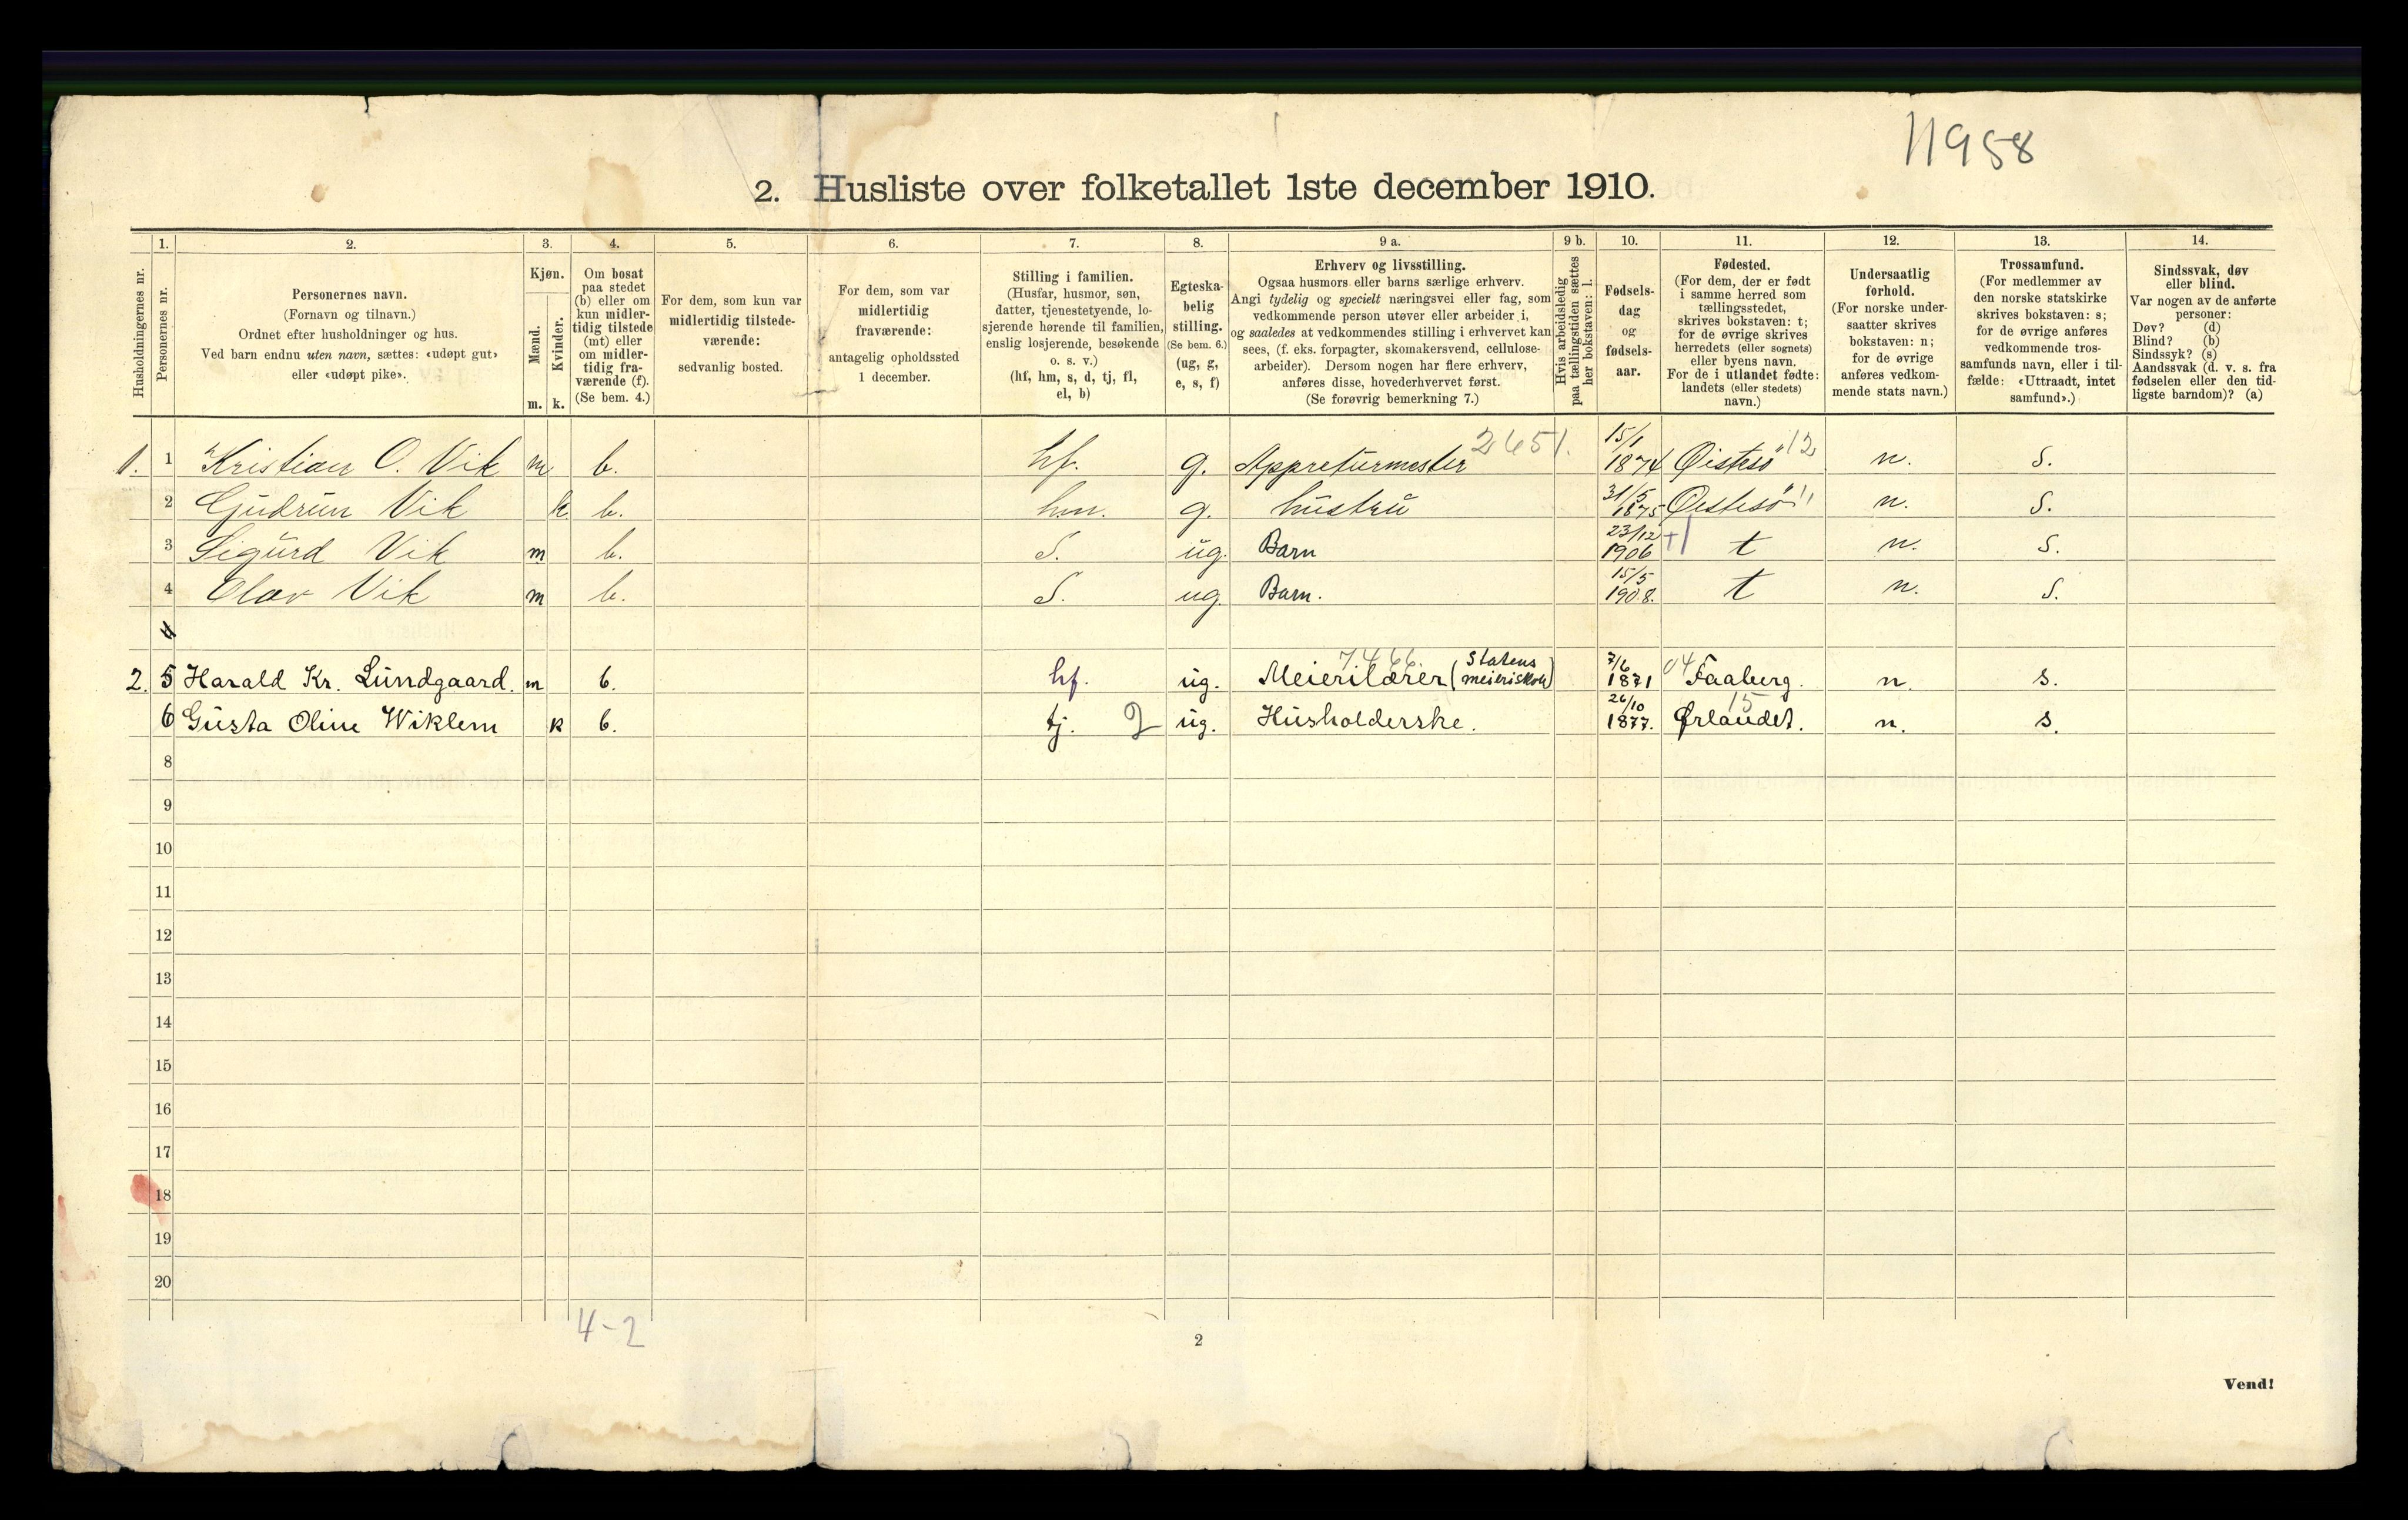 11958
2. Husliste over folketallet 1ste december 1910.
Husholdningernes nr.
1.
Personernes nr.
2.
Personernes navn.
(Fornavn og tilnavn.)
Ordnet efter husholdninger og hus.
Ved barn endnu uten navn, sættes: «udøpt gut»
eller «udøpt pike».
3.
Kjøn.
Mænd.
Kvinder.
m. k.
4.
Om bosat
paa stedet
(b) eller om
kun midler-
tidig tilstede
(mt) eller
om midler-
tidig fra-
værende (f).
(Se bem. 4.)
5.
For dem, som kun var
midlertidig tilstede-
værende:
sedvanlig bosted.
6.
For dem, som var
midlertidig
fraværende:
antagelig opholdssted
1 december.
7.
Stilling i familien.
(Husfar, husmor, søn,
datter, tjenestetyende, lo-
sjerende hørende til familien,
enslig losjerende, besøkende
o. s. v.)
(hf, hm, s, d, tj, fl,
el, b)
8.
Egteska-
belig
stilling.
(Se bem. 6.)
(ug, g,
e, s, f)
9 a.
Erhverv og livsstilling.
Ogsaa husmors eller barns særlige erhverv.
Angi tydelig og specielt næringsvei eller fag, som
vedkommende person utøver eller arbeider i,
og saaledes at vedkommendes stilling i erhvervet kan
sees, (f. eks. forpagter, skomakersvend, cellulose-
arbeider). Dersom nogen har flere erhverv,
anføres disse, hovederhvervet først.
(Se forøvrig bemerkning 7.)
9 b.
Hvis arbeidsledig
paa tællingstiden sættes
her bokstaven: l.
10.
Fødsels-
dag
og
fødsels-
aar.
11.
Fødested.
(For dem, der er født
i samme herred som
tællingsstedet,
skrives bokstaven: t;
for de øvrige skrives
herredets (eller sognets)
eller byens navn.
For de i utlandet fødte:
landets (eller stedets)
navn.)
12.
Undersaatlig
forhold.
(For norske under-
saatter skrives
bokstaven: n;
for de øvrige
anføres vedkom-
mende stats navn.)
13.
Trossamfund.
(For medlemmer av
den norske statskirke
skrives bokstaven: s;
for de øvrige anføres
vedkommende tros-
samfunds navn, eller i til-
fælde: «Uttraadt, intet
samfund».)
14.
Sindssvak, døv
eller blind.
Var nogen av de anførte
personer:
Døv? (d)
Blind? (b)
Sindssyk? (s)
Aandssvak (d. v. s. fra
fødselen eller den tid-
ligste barndom)? (a)
1. 1 Kristian O. Vik m b. hf. g. Appreturmester 2651. 15/1 1874 Øistesö 12 n. S.
2 Gudrun Vik k b. hm. g. hustru 31/5 1875 Øistesö 11 n. S.
3 Sigurd Vik m b. S. ug. Barn 23/12 1906 t n. S.
4 Olav Vik m b. S. ug. Barn. 15/5 1908. t n. S.
2. 5 Harald Kr. Lundgaard. m b. hf. ug. Meierilærer (Statens meieriskole) 7/6 1871 04 Faaberg. n. s.
6 Gusta Oline Wiklem k b. tj. 2 ug. Husholderske. 26/10 1877. 15 Ørlandet. n. s.
8
9
10
11
12
13
14
15
16
17
18
19
20
4-2
2
Vend!